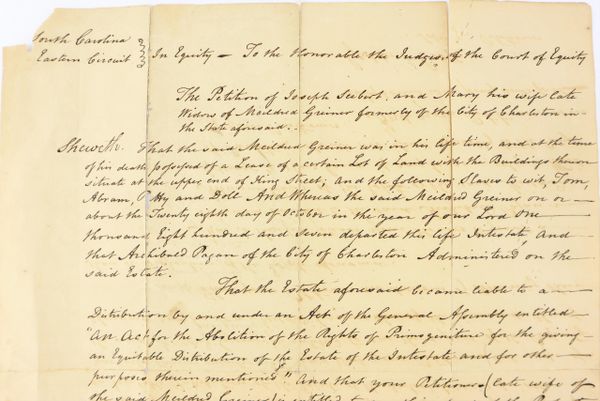 South Carolina
Eastern Circuit
In Equity — To the Honorable the Judges of the Court of Equity
The Petition of Joseph Seibert, and Mary his wife late
Widow of Meildred Greiner formerly of the City of Charleston in
the State aforesaid.
Sheweth. That the said Meildred Greiner was in his life time, and at the time
of his death possessed of a Lease of a certain Lot of Land with the Buildings thereon
situate at the upper end of King Street; and the following Slaves to wit, Tom,
Abram, Patty and Doll. And Whereas the said Meildred Greiner on or —
about the Twenty eighth day of October in the year of our Lord One —
thousand Eight hundred and Seven departed this life Intestate, and —
that Archibald Pagan of the City of Charleston Administered on the —
said Estate.
That the Estate aforesaid became liable to a —
Distribution by and under an Act of the General Assembly entitled —
"An Act for the Abolition of the Rights of Primogeniture for the giving —
an Equitable Distribution of the Estate of the Intestate and for other —
purposes therein mentioned." And that your Petitioners (late wife of
the said Meildred Greiner) is entitled to